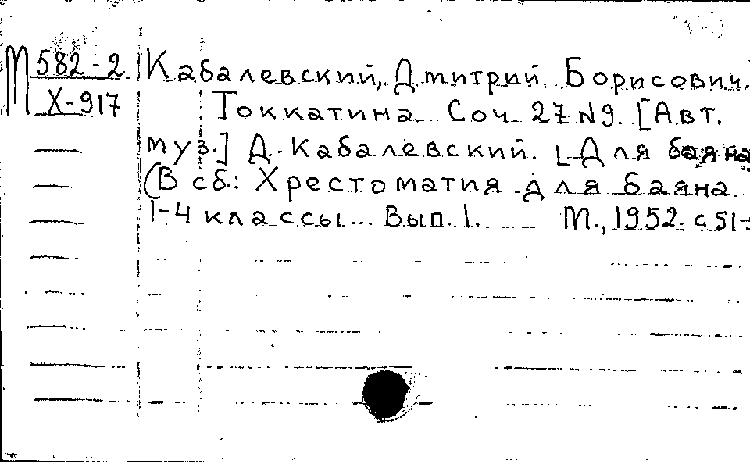 М 582-2 Кабалевский, Дмитрий Борисович.
Х-917 Токкатина Соч. 27 №9. [Авт.
муз.] Д. Кабалевский. [Для баяна
(В сб.: Хрестоматия для баяна
1-4 классы... Вып. 1. М., 1952. с 51-